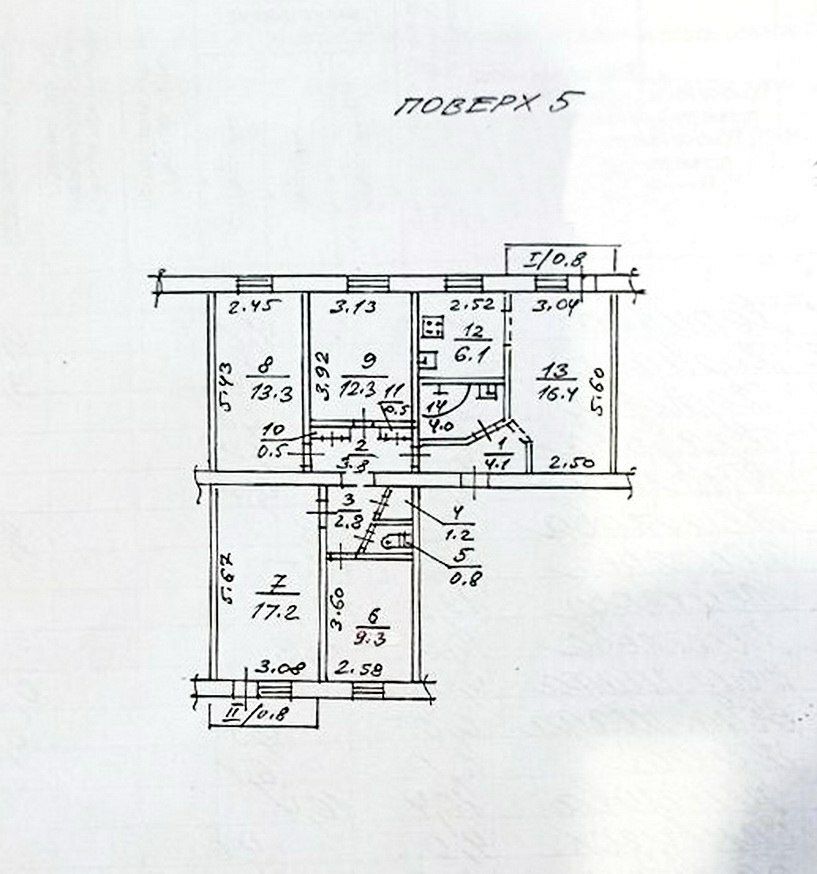 ПОВЕРХ 5
I/0.8
2.45
3.13
2.52
3.04
8
13.3
5.43
9
12.3
3.92
12
6.1
13
16.4
5.60
11
0.5
14
4.0
10
0.5
2
3.8
1
4.1
2.50
3
2.8
4
1.2
5
0.8
7
17.2
5.67
6
9.3
3.60
3.08
2.58
II/0.8